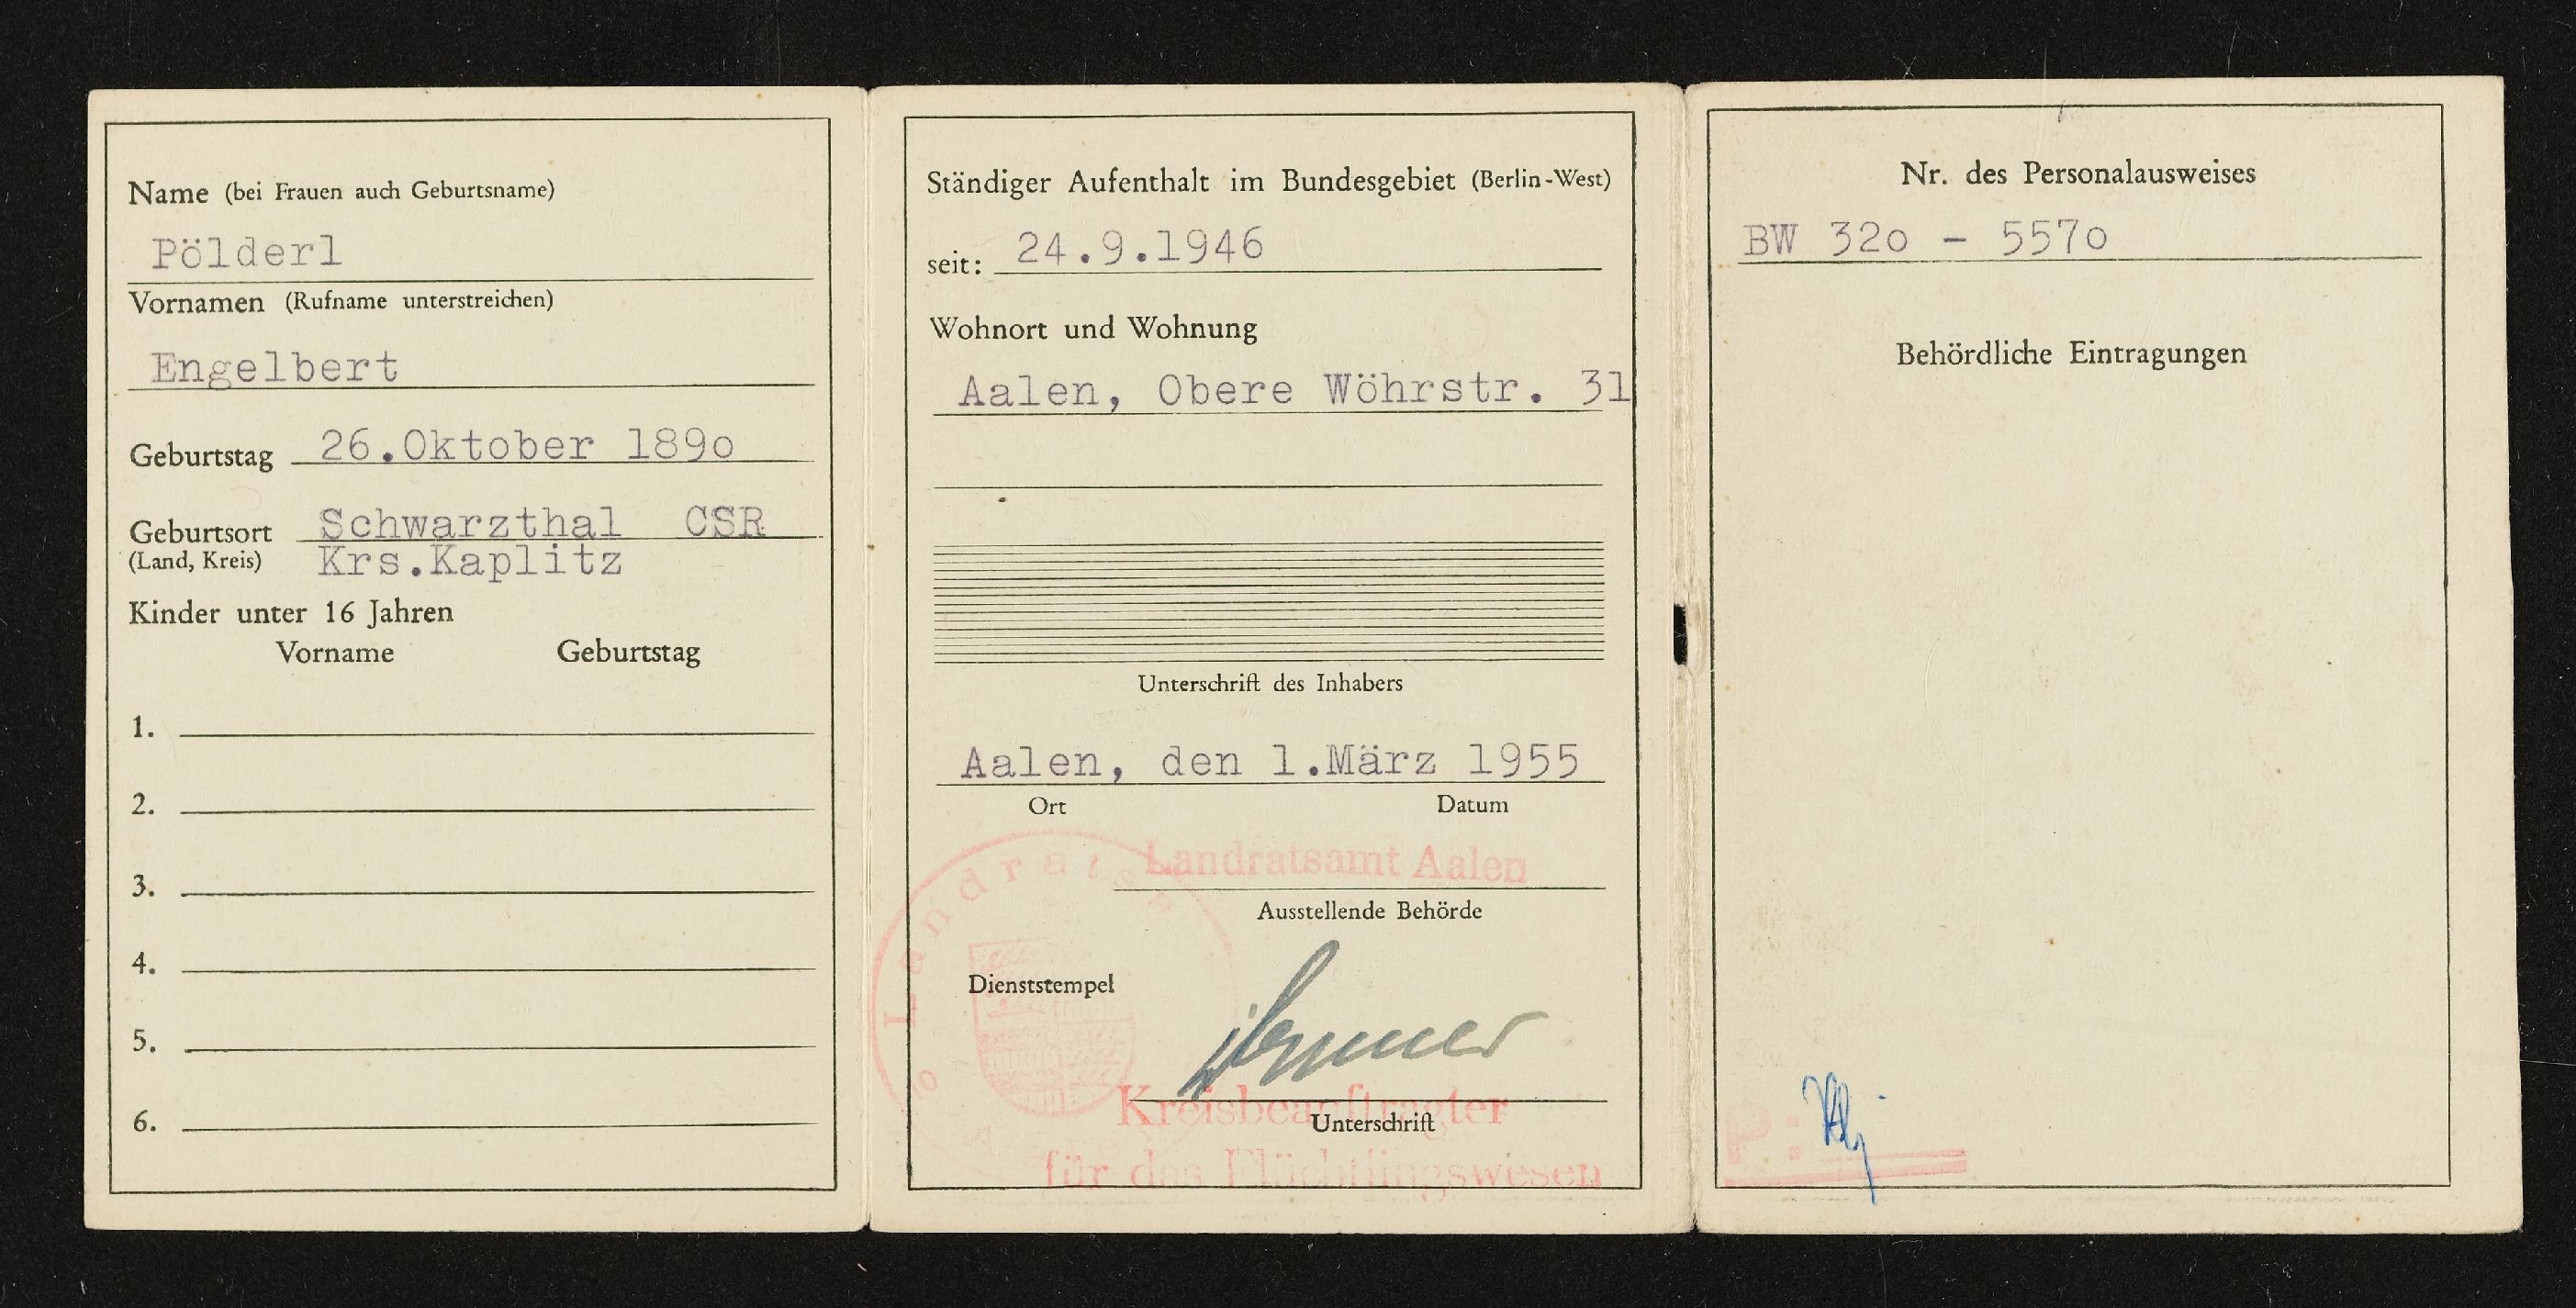 Name (bei Frauen auch Geburtsname)
Pölderl
Vornamen (Rufname unterstreichen)
Engelbert
Geburtstag 26.Oktober 1890
Geburtsort Schwarzthal CSR
(Land, Kreis) Krs.Kaplitz
Kinder unter 16 Jahren
Vorname Geburtstag
1.
2.
3.
4.
5.
6.
Ständiger Aufenthalt im Bundesgebiet (Berlin-West)
seit: 24.9.1946
Wohnort und Wohnung
Aalen, Obere Wöhrstr. 31
Unterschrift des Inhabers
Aalen, den 1.März 1955
Ort Datum
Landratsamt Aalen
Ausstellende Behörde
Dienststempel
Kreisbeauftragter
Unterschrift
für das Flüchtlingswesen
Nr. des Personalausweises
BW 320 - 5570
Behördliche Eintragungen